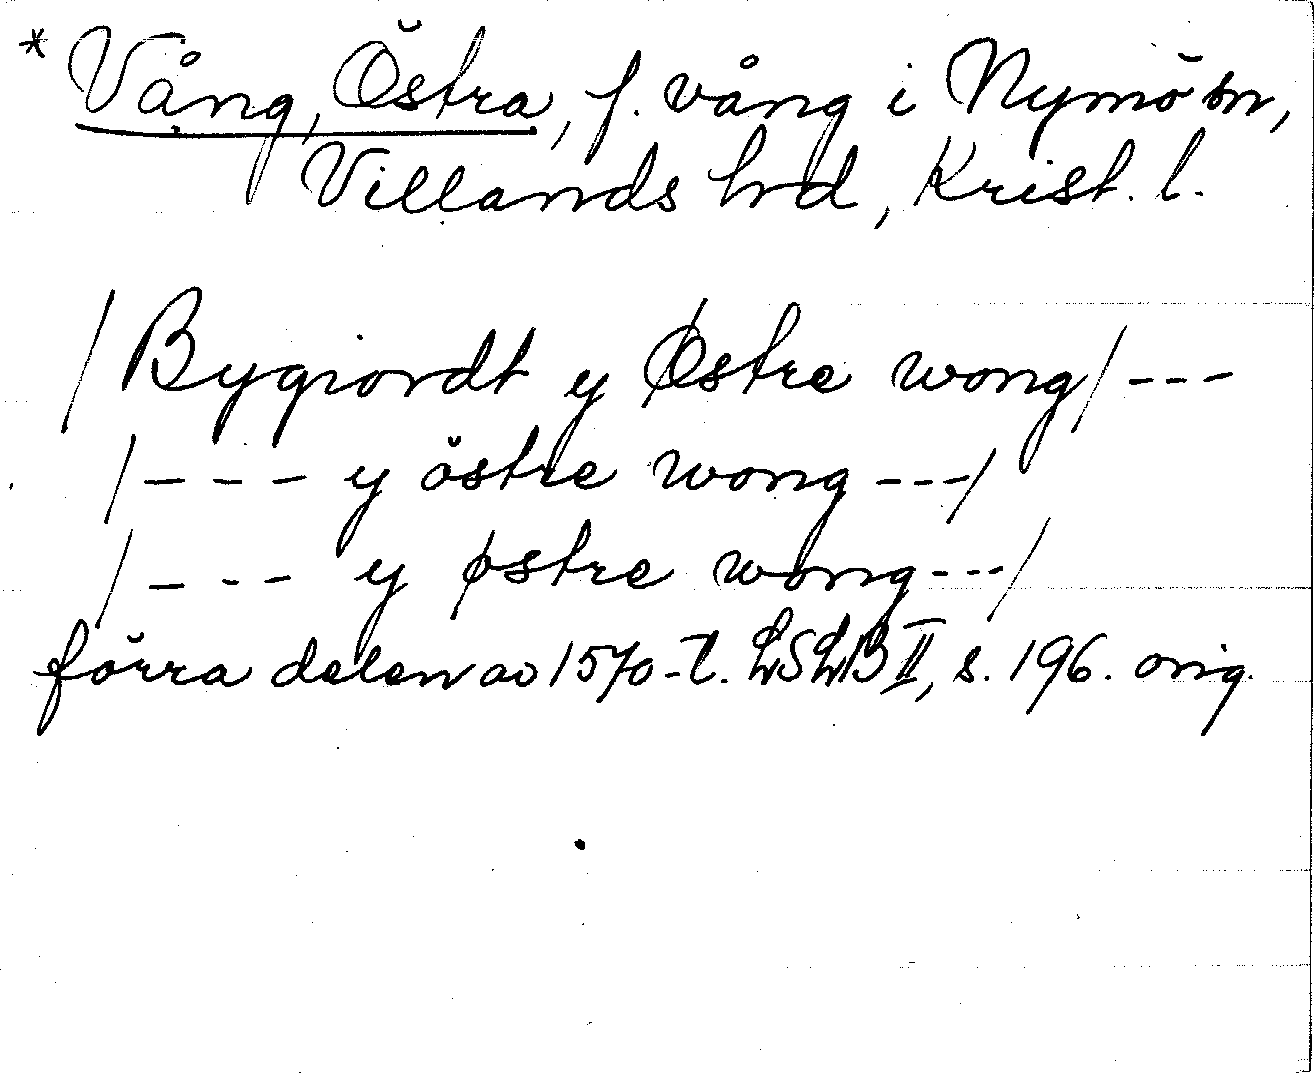 * Vång, Östra, f. vång i Nymö sn,
Villands hrd, Krist. l.
/ Bygiordt y Østre wong / ---
/ --- y östre wong --- /
/ --- y østre wong --- /
förra delen av 1570-t. LSLB II, s. 196. orig.